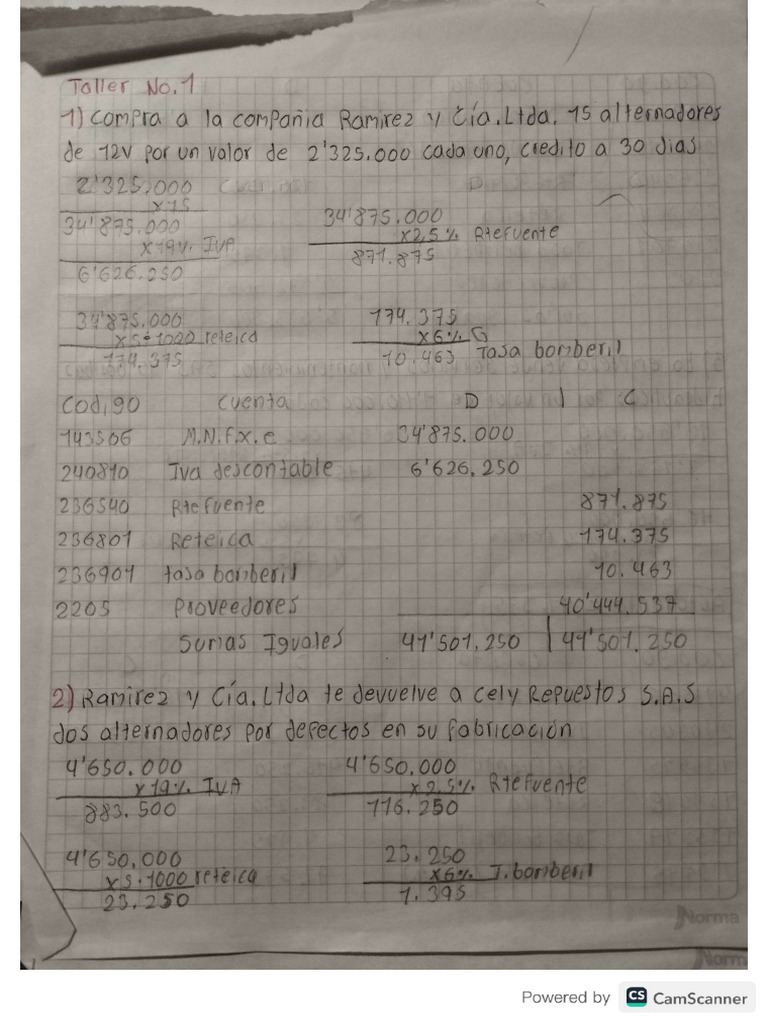 Taller No.1
1) Compra a la compañia Ramirez y Cía.Ltda. 15 alternadores
de 12v por un valor de 2'325.000 cada uno, credito a 30 dias
2'325.000
x15
34'875.000 34'875.000
x19% IVA x2,5% Rtefuente
6'626.250 871.875
34'875.000 174.375
x5÷1000 reteica x6% G
174.375 10.463 Tasa bomberil
Cod,90 Cuenta D | C
143506 M.N.f.x.e 34'875.000
240810 Iva descontable 6'626.250
236540 Rtefuente 871.875
236801 Reteica 174.375
236901 tasa bomberil 10.463
2205 Proveedores 40'444.537
Sumas Iguales 41'501.250 | 41'501.250
2) Ramirez y Cía.Ltda te devuelve a cely Repuestos S.A.S
dos alternadores por defectos en su fabricación
4'650.000 4'650.000
x19% IVA x2.5% Rtefuente
883.500 116.250
4'650.000 23.250
x5÷1000 reteica x6% T.bomberil
23.250 1.395
Norma
Norm
Powered by CS CamScanner